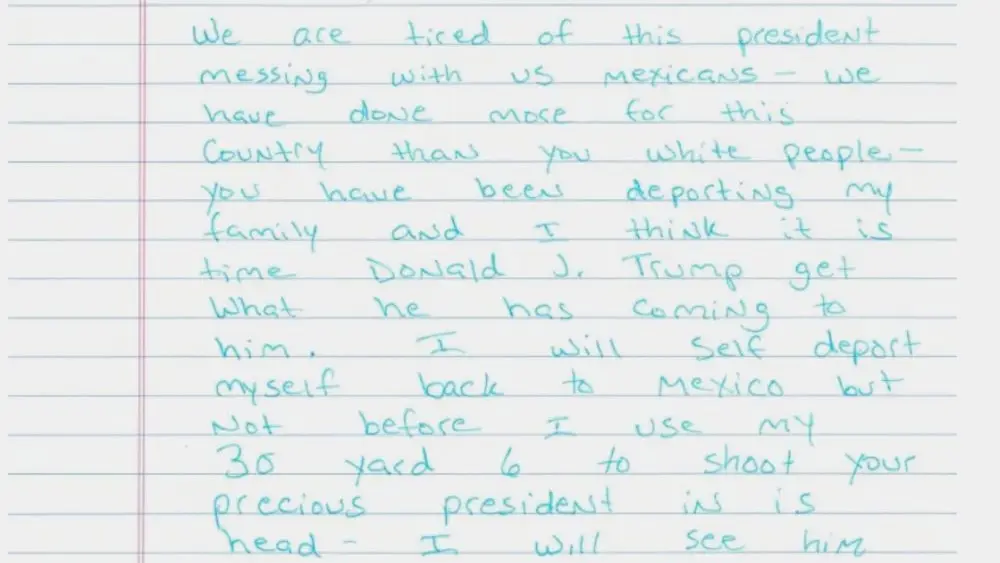 We are tired of this president
messing with us mexicans – we
have done more for this
Country than you white people –
you have been deporting my
family and I think it is
time Donald J. Trump get
What he has coming to
him. I will Self deport
myself back to Mexico but
Not before I use my
30 yard 6 to shoot your
precious president in is
head – I will see him